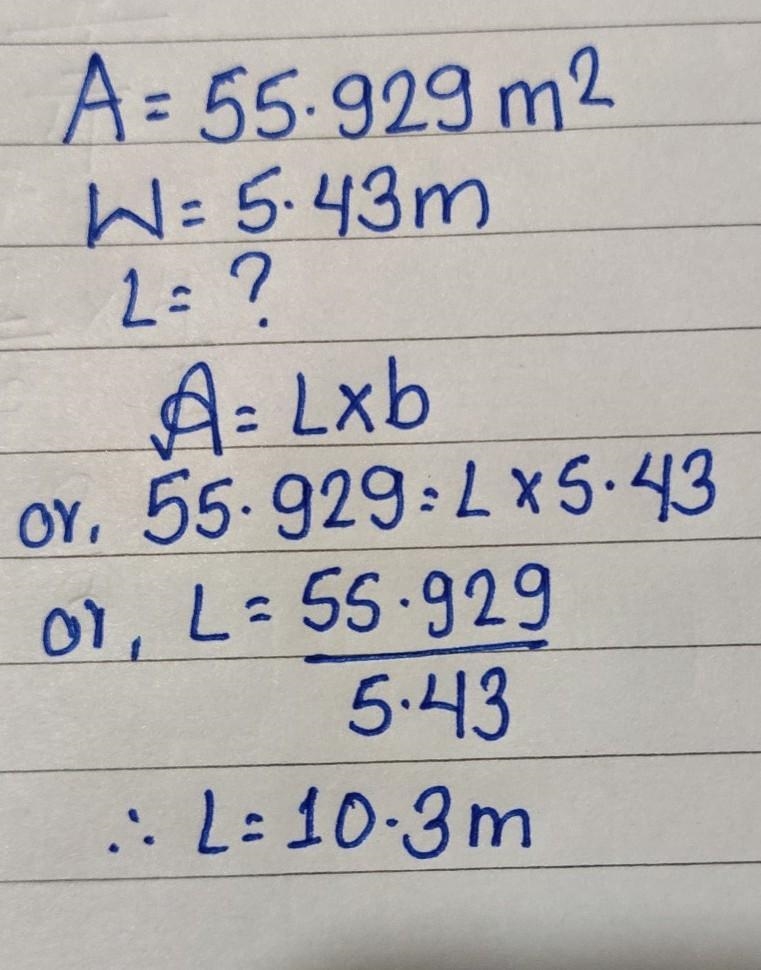 A = 55.929 m²
W = 5.43 m
L = ?
A = L x b
or, 55.929 = L x 5.43
or, L = 55.929
5.43
∴ L = 10.3 m